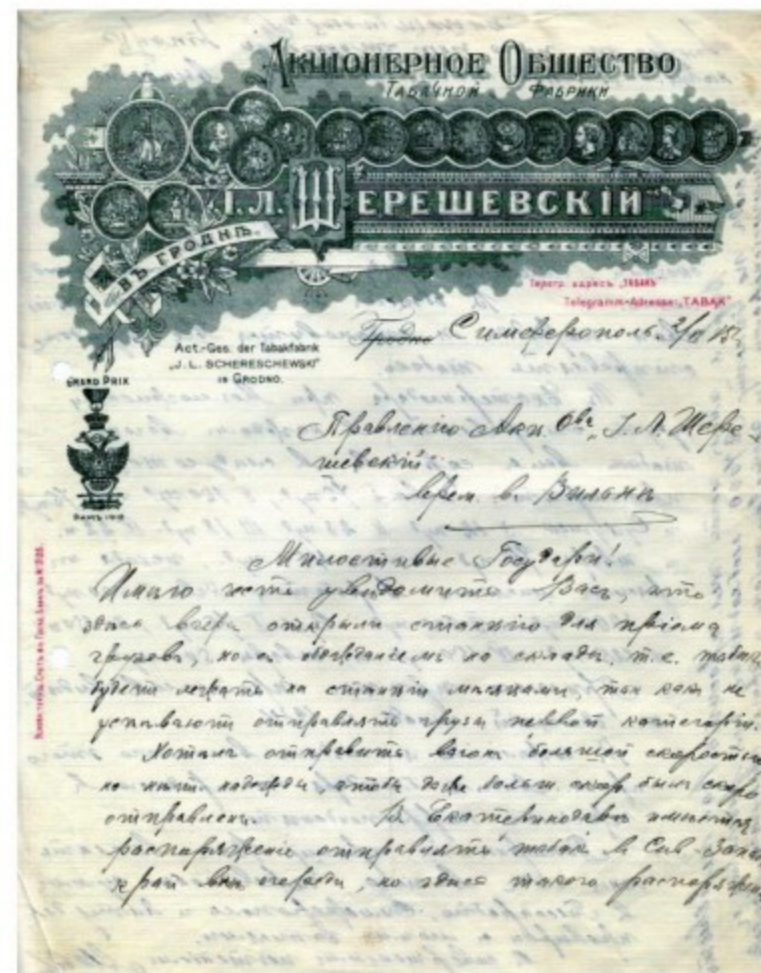 Акціонерное Общество
Табачной Фабрики
І. Л. Шерешевскій
въ Гроднѣ.
Телегр. адресъ „ТАБАКЪ“
Telegramm-Adresse: „TABAK“
Гродно Симферополь. 2/ 15
Act.-Ges. der Tabakfabrik
„J. L. SCHERESCHEWSKI“
in GRODNO.
GRAND PRIX
Правленію Акц. О-ва „І. Л. Шере-
шевскій“
врем. в. Вильнѣ
Милостивые Государи!
Имѣю честь увѣдомить Васъ, что
здѣсь вчера открыли станцію для пріема
грузовъ, но съ ожиданіемъ на складъ, т. е. табакъ
будетъ лежать на станціи мѣсяцами, такъ какъ не
успѣваютъ отправлять грузы первой категоріи.
Хотѣлъ отправить вагонъ большой скоростью
но нѣтъ надежды чтобы даже больш. скор. былъ скоро
отправленъ. В Екатеринодарѣ имѣется
распоряженіе отправлять табакъ в Сѣв. Запад
край внѣ очереди, но здѣсь такого распоряженія